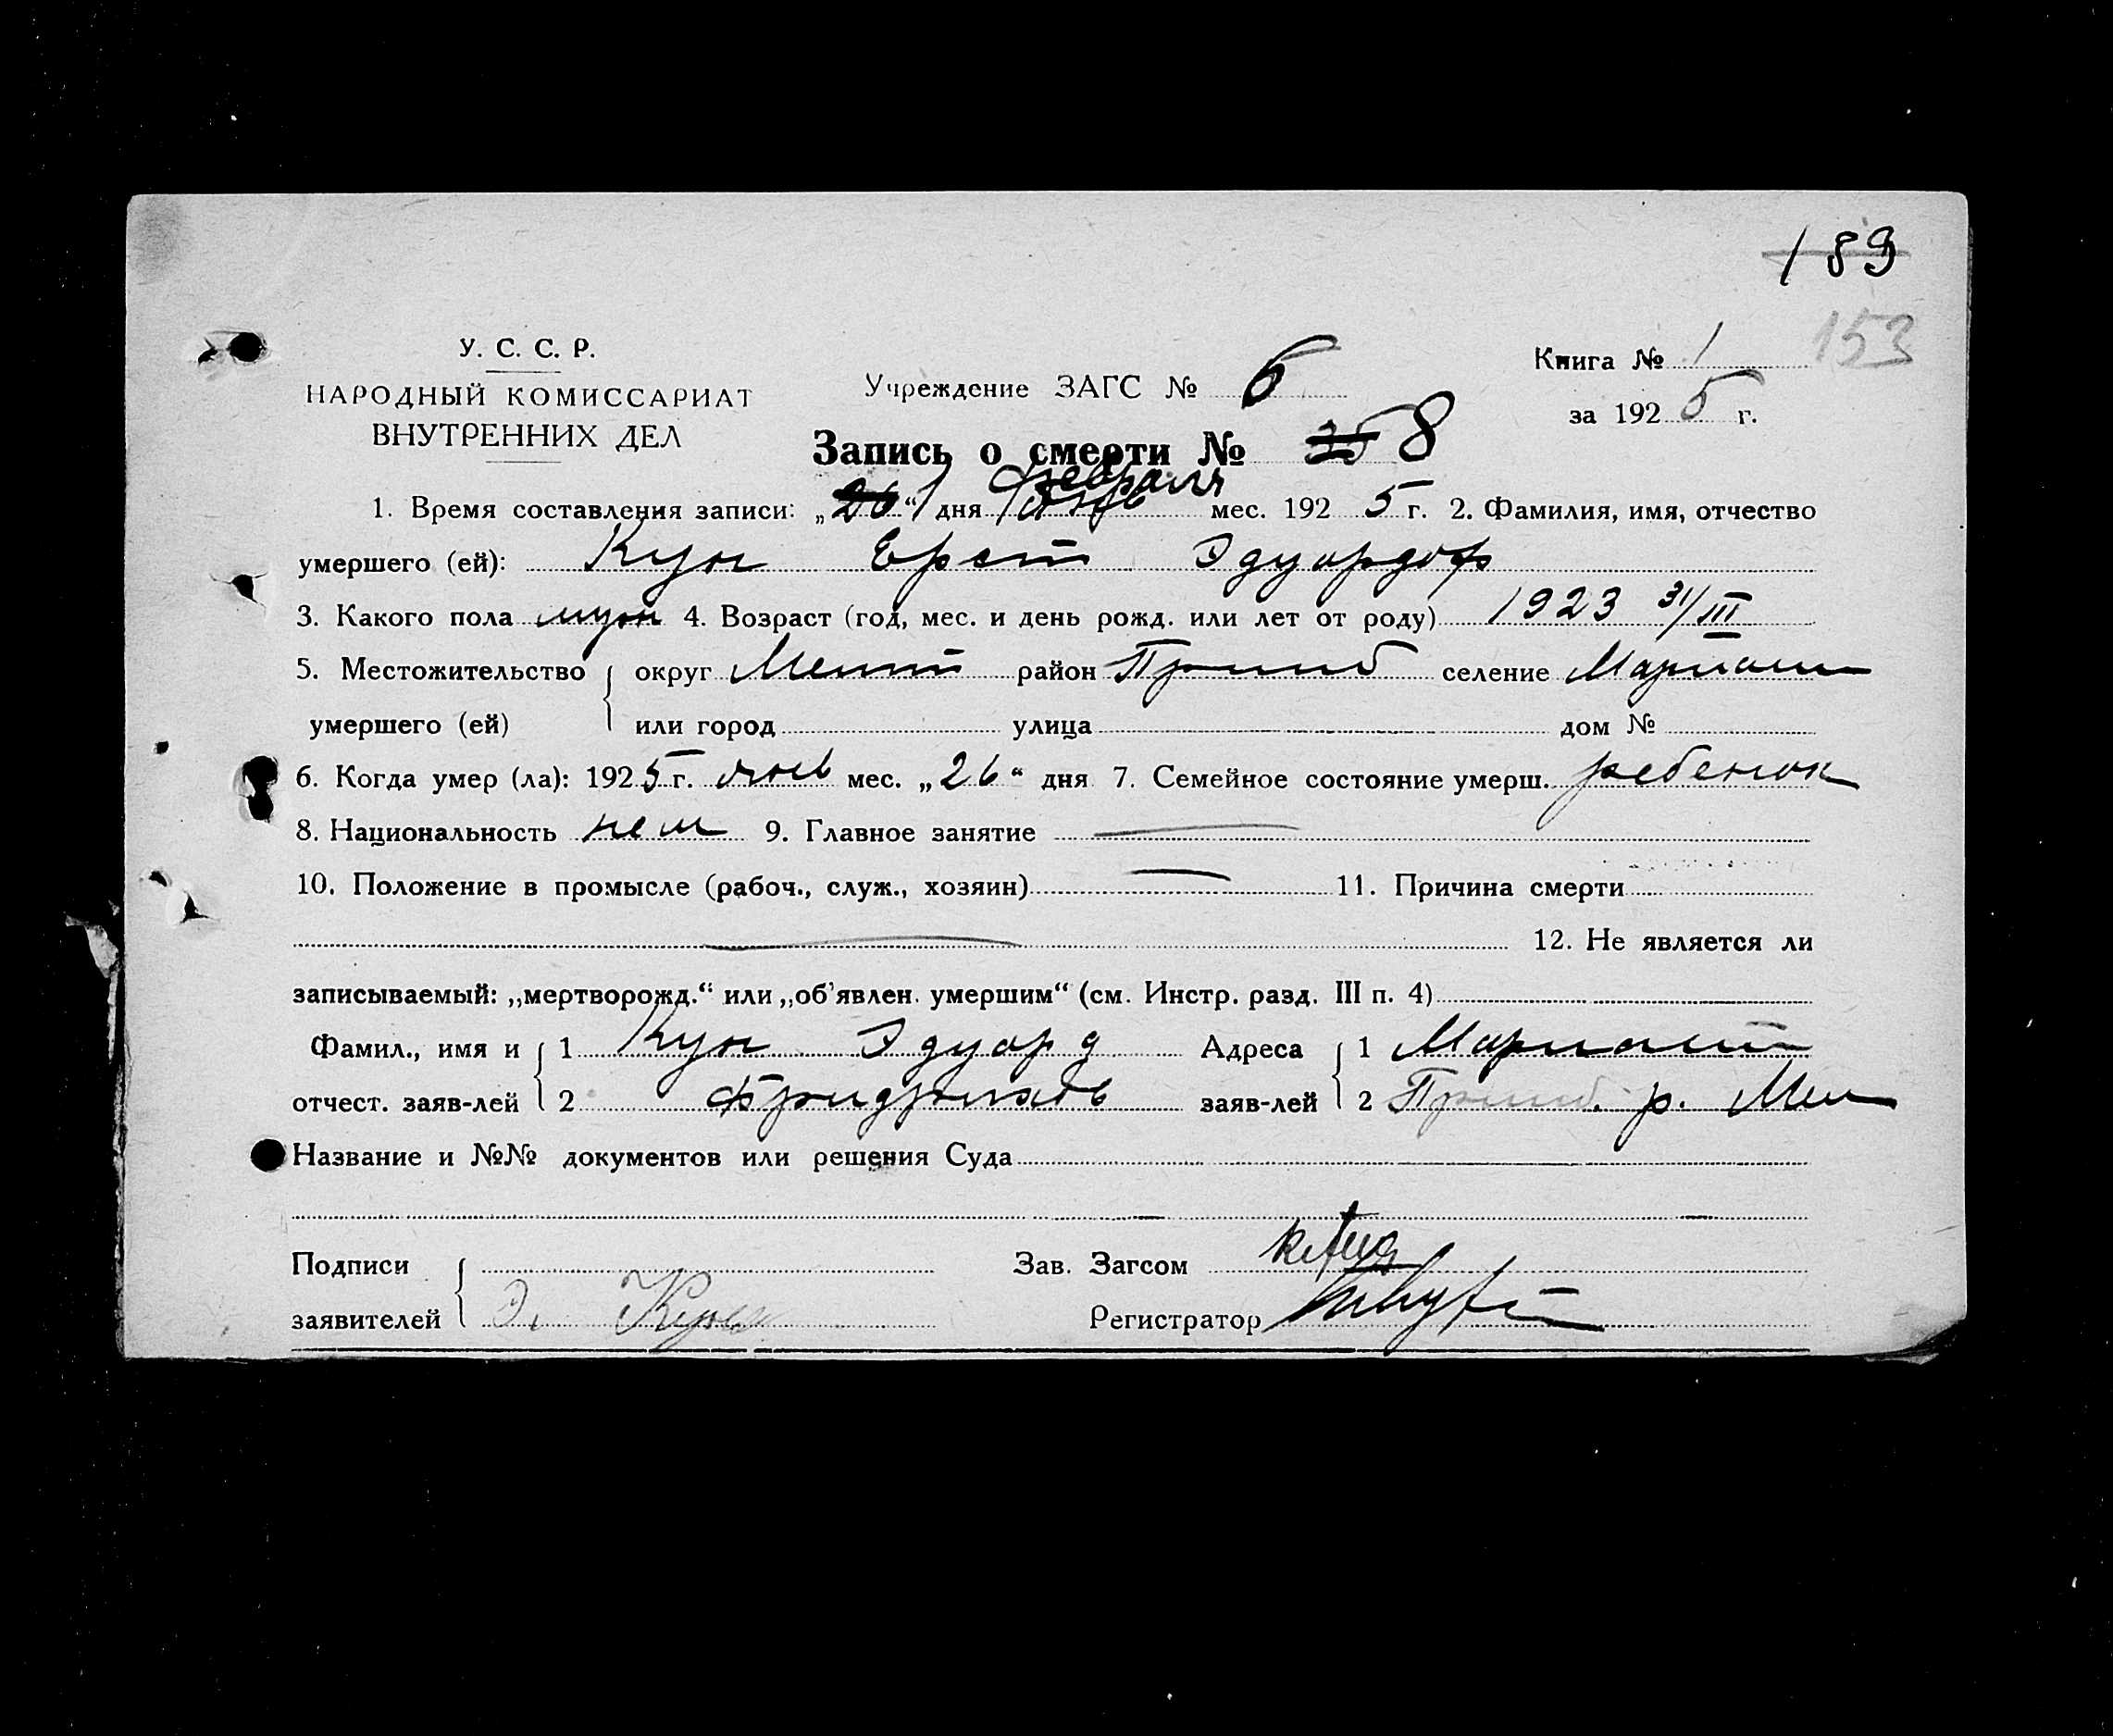 189
153
У. С. С. Р.
НАРОДНЫЙ КОМИССАРИАТ
ВНУТРЕННИХ ДЕЛ
Учреждение ЗАГС № 6
Книга № 1
за 1925 г.
Запись о смерти № 8
1. Время составления записи: „26“ 1 дня февраля мес. 1925 г. 2. Фамилия, имя, отчество
умершего (ей): Кун Ерст Эдуардоф
3. Какого пола муж 4. Возраст (год, мес. и день рожд. или лет от роду) 1923 31/III
5. Местожительство округ район селение
умершего (ей) или город улица дом №
6. Когда умер (ла): 1925 г. янв мес. „26“ дня 7. Семейное состояние умерш. ребенок
8. Национальность нем 9. Главное занятие —
10. Положение в промысле (рабоч., служ., хозяин) — 11. Причина смерти
— 12. Не является ли
записываемый: „мертворожд.“ или „об’явлен. умершим“ (см. Инстр. разд. III п. 4)
Фамил., имя и 1 Кун Эдуард Адреса 1
отчест. заяв-лей 2 заяв-лей 2 р. Мел
Название и №№ документов или решения Суда
Подписи Зав. Загсом
заявителей Э. Кун Регистратор